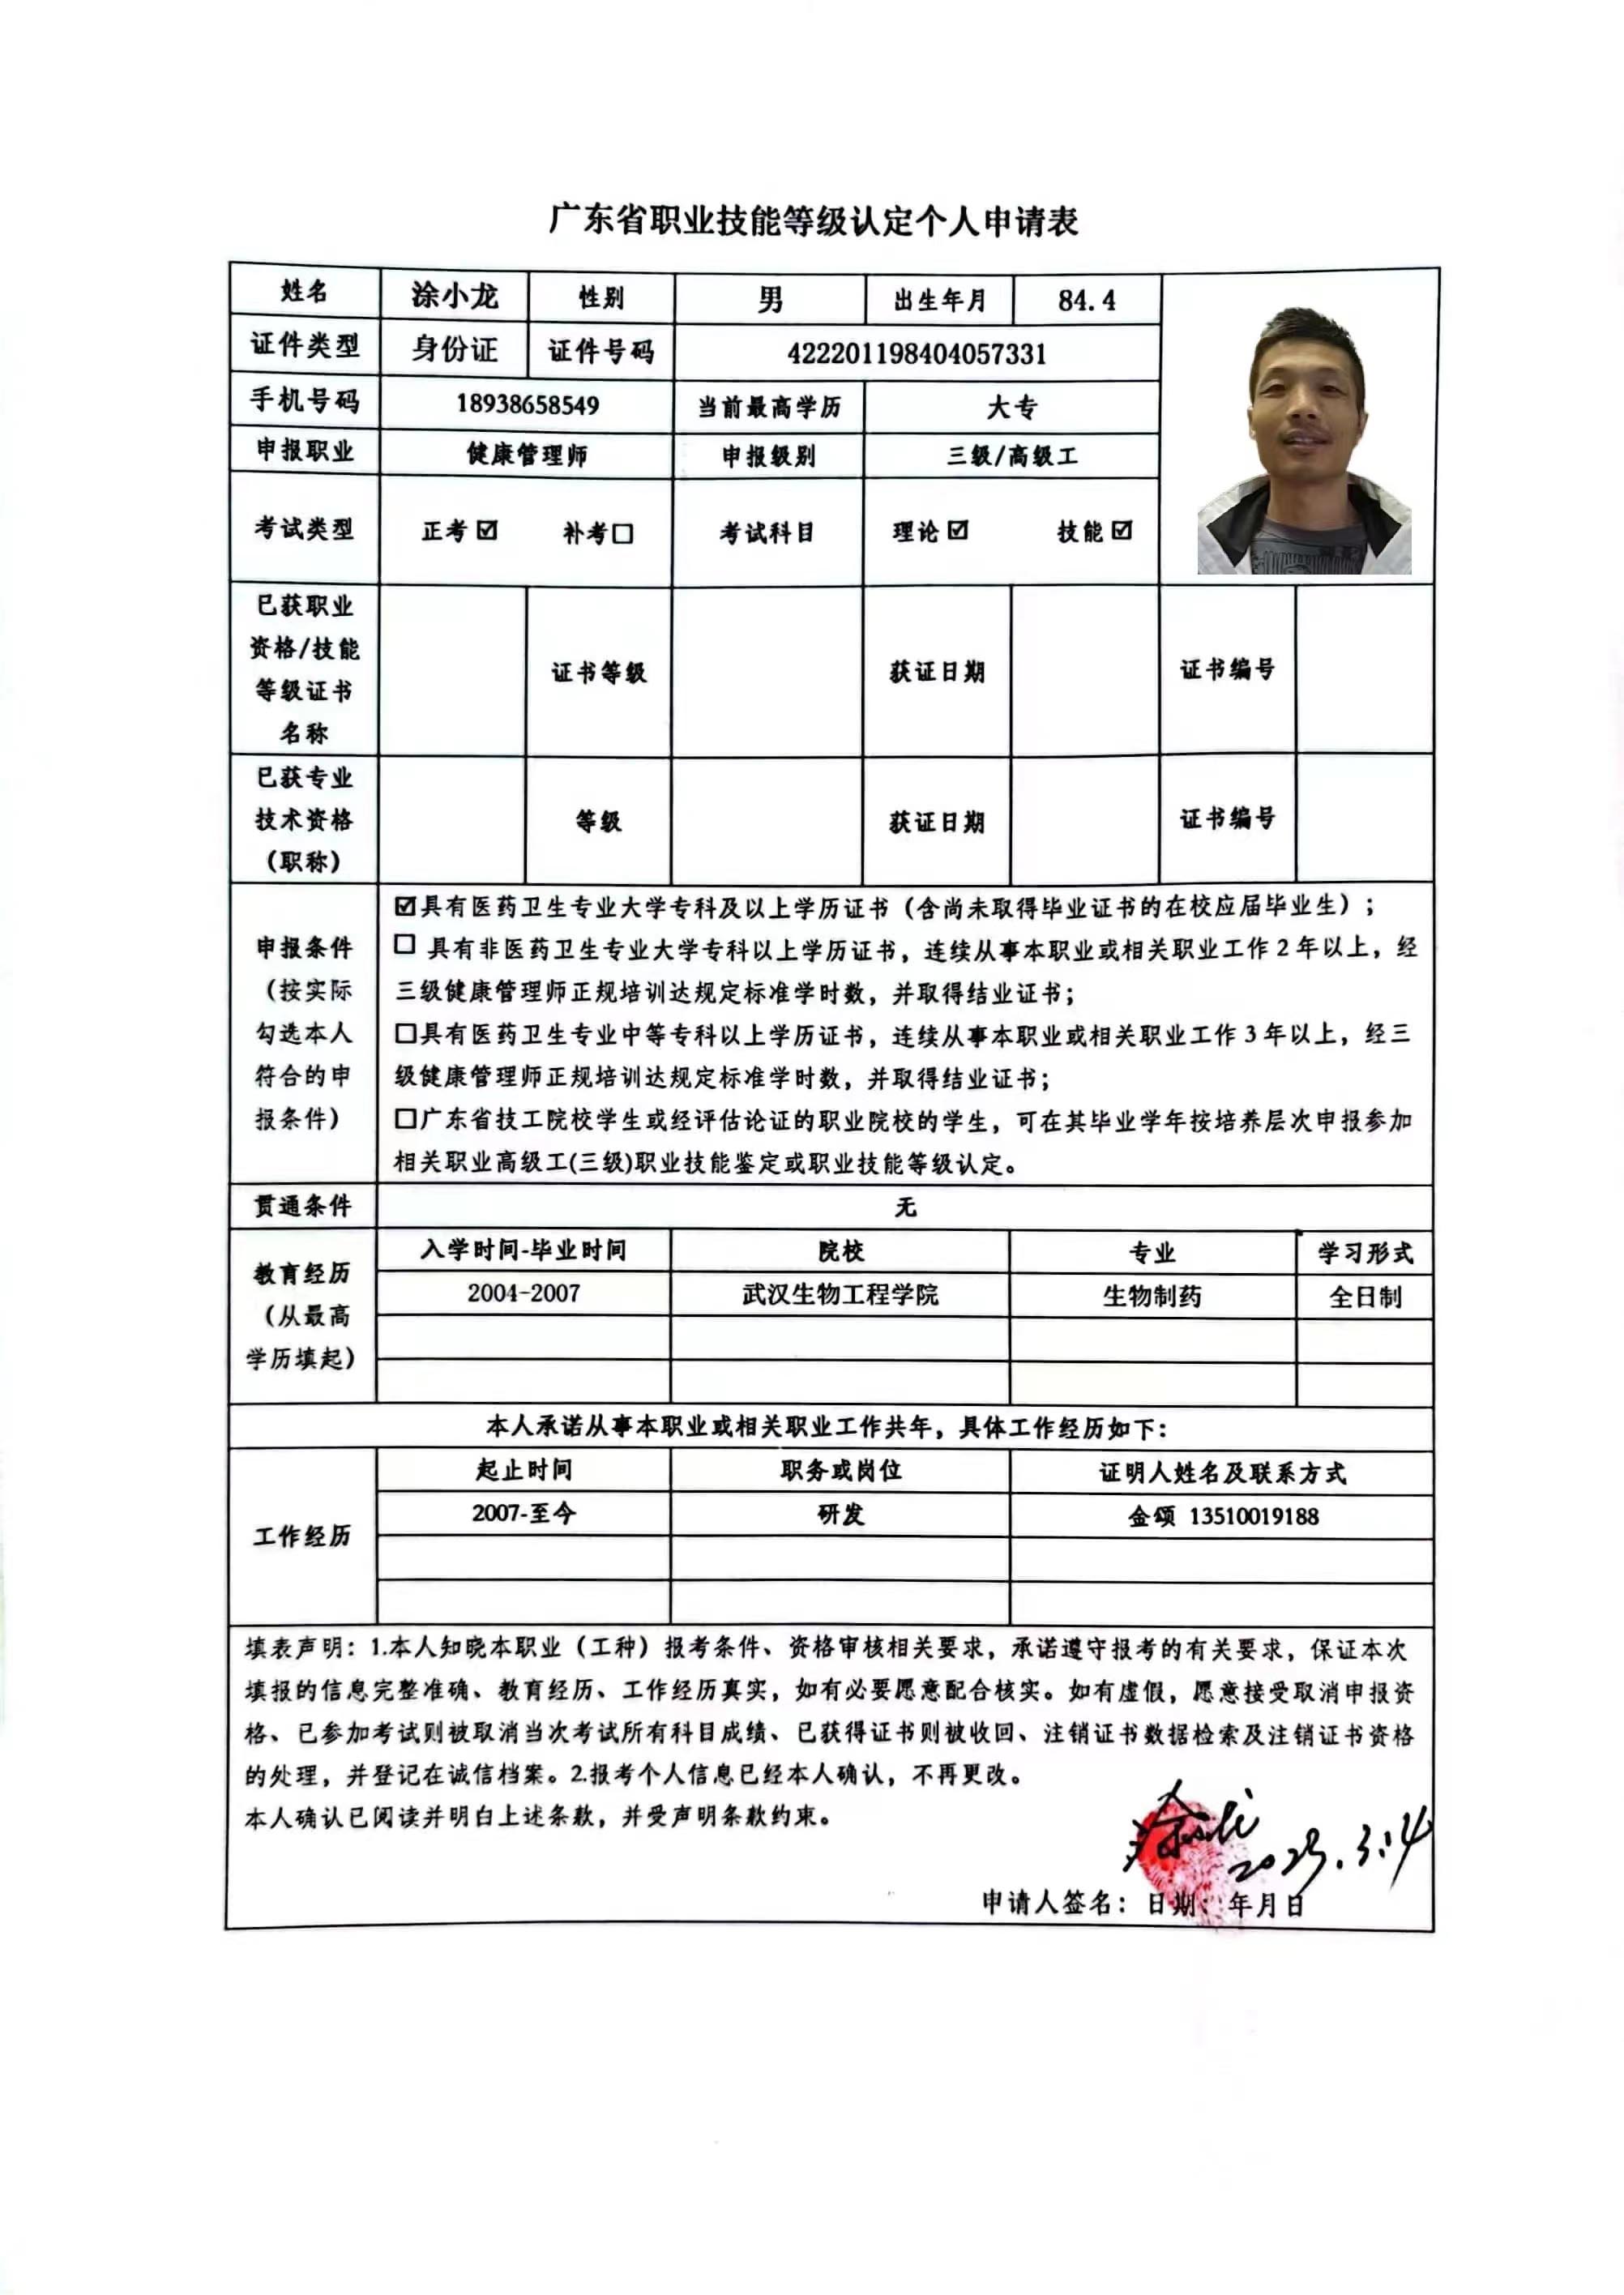 广东省职业技能等级认定个人申请表
姓名 涂小龙 性别 男 出生年月 84.4
证件类型 身份证 证件号码 422201198404057331
手机号码 18938658549 当前最高学历 大专
申报职业 健康管理师 申报级别 三级/高级工
考试类型 正考☑ 补考☐ 考试科目 理论☑ 技能☑
已获职业
资格/技能
等级证书
名称
证书等级 获证日期 证书编号
已获专业
技术资格
（职称）
等级 获证日期 证书编号
申报条件
（按实际
勾选本人
符合的申
报条件）
☑具有医药卫生专业大学专科及以上学历证书（含尚未取得毕业证书的在校应届毕业生）；
☐ 具有非医药卫生专业大学专科以上学历证书，连续从事本职业或相关职业工作 2 年以上，经
三级健康管理师正规培训达规定标准学时数，并取得结业证书；
☐具有医药卫生专业中等专科以上学历证书，连续从事本职业或相关职业工作 3 年以上，经三
级健康管理师正规培训达规定标准学时数，并取得结业证书；
☐广东省技工院校学生或经评估论证的职业院校的学生，可在其毕业学年按培养层次申报参加
相关职业高级工(三级)职业技能鉴定或职业技能等级认定。
贯通条件 无
教育经历
（从最高
学历填起）
入学时间-毕业时间 院校 专业 学习形式
2004-2007 武汉生物工程学院 生物制药 全日制
本人承诺从事本职业或相关职业工作共年，具体工作经历如下：
工作经历
起止时间 职务或岗位 证明人姓名及联系方式
2007-至今 研发 金颂 13510019188
填表声明：1.本人知晓本职业（工种）报考条件、资格审核相关要求，承诺遵守报考的有关要求，保证本次
填报的信息完整准确、教育经历、工作经历真实，如有必要愿意配合核实。如有虚假，愿意接受取消申报资
格、已参加考试则被取消当次考试所有科目成绩、已获得证书则被收回、注销证书数据检索及注销证书资格
的处理，并登记在诚信档案。2.报考个人信息已经本人确认，不再更改。
本人确认已阅读并明白上述条款，并受声明条款约束。
涂小龙 2025.3.14
申请人签名：日期：年月日